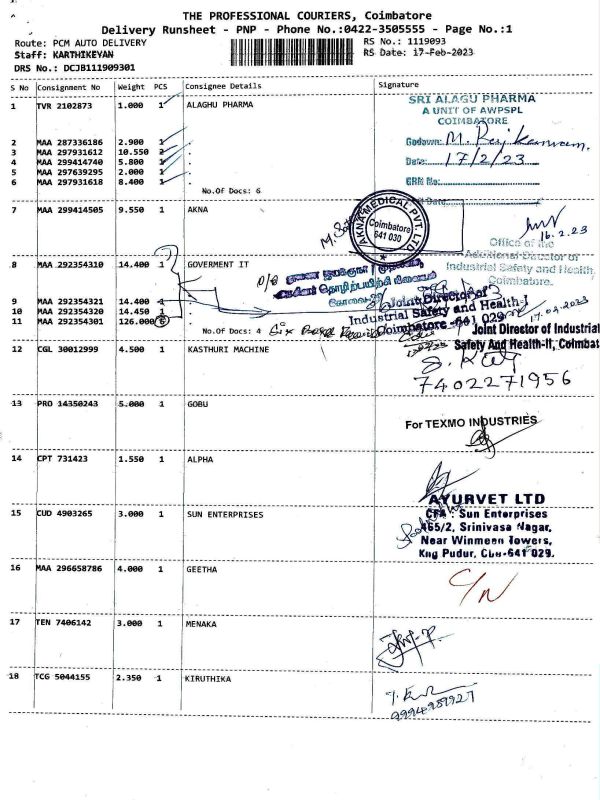 THE PROFESSIONAL COURIERS, Coimbatore
Delivery Runsheet - PNP - Phone No.:0422-3505555 - Page No.:1
Route: PCM AUTO DELIVERY
RS No.: 1119093
Staff: KARTHIKEYAN
RS Date: 17-Feb-2023
DRS No.: DCJB111909301
S No Consignment No Weight PCS Consignee Details Signature
1 TVR 2102873 1.000 1 ALAGHU PHARMA
SRI ALAGU PHARMA
A UNIT OF AWPSPL
COIMBATORE
2 MAA 287336186 2.900 1 .
3 MAA 297931612 10.550 2 .
4 MAA 299414740 5.800 1 .
5 MAA 297639295 2.000 1 .
6 MAA 297931618 8.400 1 .
No.Of Docs: 6
Godown:
Date: 17/2/23
GRN No:
7 MAA 299414505 9.550 1 AKNA
AKNA MEDICAL PVT. LTD
Coimbatore
641 030
16.2.23
8 MAA 292354310 14.400 1 GOVERMENT IT
Office of the
Additional Director of
Industrial Safety and Health,
Coimbatore.
9 MAA 292354321 14.400 1 .
10 MAA 292354320 14.450 1 .
11 MAA 292354301 126.000 6 .
No.Of Docs: 4
Joint Director of
Industrial Safety and Health-I
Coimbatore -641 029
17.02.2023
Joint Director of Industrial
Safety And Health-II, Coimbat
12 CGL 30012999 4.500 1 KASTHURI MACHINE
7402271956
13 PRO 14350243 5.000 1 GOBU
For TEXMO INDUSTRIES
14 CPT 731423 1.550 1 ALPHA
15 CUD 4903265 3.000 1 SUN ENTERPRISES
AYURVET LTD
CFA : Sun Enterprises
465/2, Srinivasa Nagar,
Near Winmeen Towers,
Kng Pudur, Cbe-641 029.
16 MAA 296658786 4.000 1 GEETHA
C/N
17 TEN 7406142 3.000 1 MENAKA
18 TCG 5044155 2.350 1 KIRUTHIKA